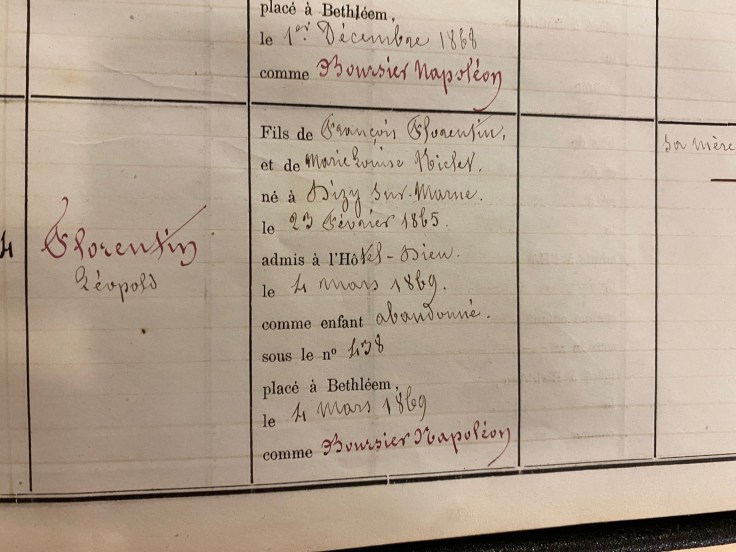 placé à Bethléem,
le 1er Décembre 1868
comme Boursier Napoléon
4
Florentin
Léopold
Fils de François Florentin,
et de Marie Louise Nielet.
né à Dizy sur-Marne.
le 23 Février 1865.
admis à l'Hôtel-Dieu.
le 4 mars 1869.
comme enfant abandonné.
sous le nº 438
placé à Bethléem,
le 4 mars 1869
comme Boursier Napoléon
Sa mère